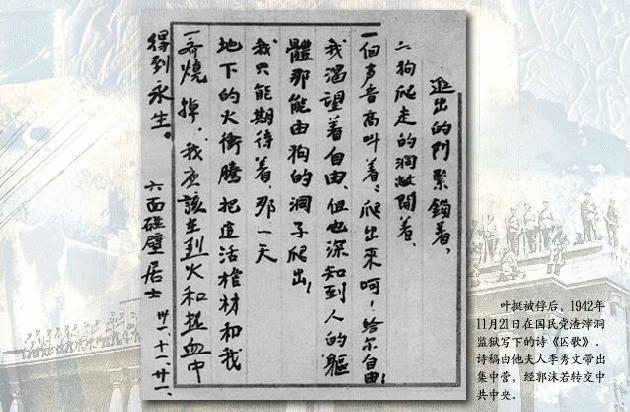 進出的门緊鎖着，
狗爬走的洞敞開着，
一個声音高叫着：爬出來呵！給尔自由！
我渴望着自由，但也深知到人的軀
體那能由狗的洞子爬出！
我只能期待着，那一天
地下的火衝騰把這活棺材和我
一齊燒掉，我应該在烈火和热血中
得到永生。
六面碰壁居士
卅一、十一、廿一、
叶挺被俘后，1942年
11月21日在国民党渣滓洞
监狱写下的诗《囚歌》．
诗稿由他夫人李秀文带出
集中营，经郭沫若转交中
共中央．